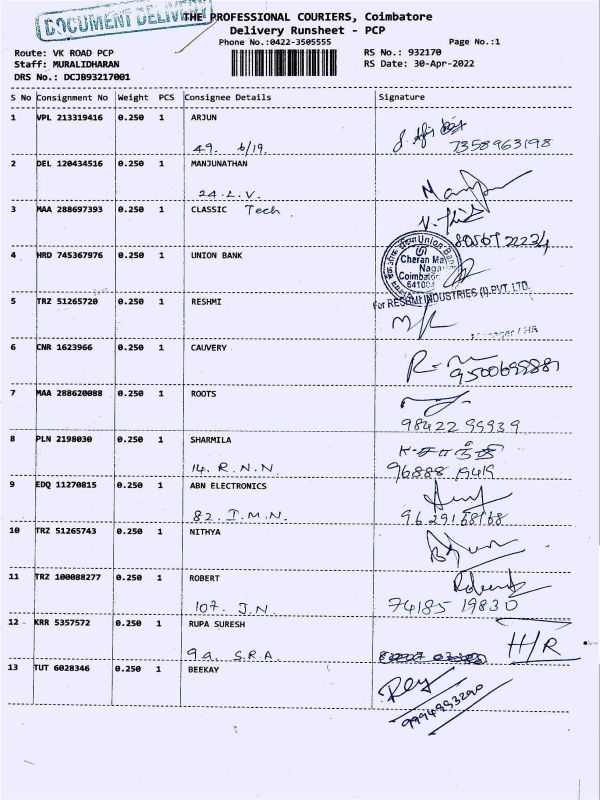 DOCUMENT DELIVERY
THE PROFESSIONAL COURIERS, Coimbatore
Delivery Runsheet - PCP
Phone No.:0422-3505555 Page No.:1
Route: VK ROAD PCP RS No.: 932170
Staff: MURALIDHARAN RS Date: 30-Apr-2022
DRS No.: DCJB93217001
S No Consignment No Weight PCS Consignee Details Signature
1 VPL 213319416 0.250 1 ARJUN
49. 6/19. 7358963198
2 DEL 120434516 0.250 1 MANJUNATHAN
24.L.V.
3 MAA 288697393 0.250 1 CLASSIC Tech
4 HRD 745367976 0.250 1 UNION BANK
Union Bank
Cheran Ma
Nagar
Coimbatore
5 TRZ 51265720 0.250 1 RESHMI
For RESHMI INDUSTRIES (I) PVT. LTD.
Manager / HR
6 CNR 1623966 0.250 1 CAUVERY
7 MAA 288620088 0.250 1 ROOTS
98422 99939
8 PLN 2198030 0.250 1 SHARMILA
14. R.N.N 96888 19419
9 EDQ 11270815 0.250 1 ABN ELECTRONICS
82. I.M.N. 9629168168
10 TRZ 51265743 0.250 1 NITHYA
11 TRZ 100088277 0.250 1 ROBERT
107. J.N 74185 19830
12 KRR 5357572 0.250 1 RUPA SURESH
9a. S.R.A. H/R
13 TUT 6028346 0.250 1 BEEKAY